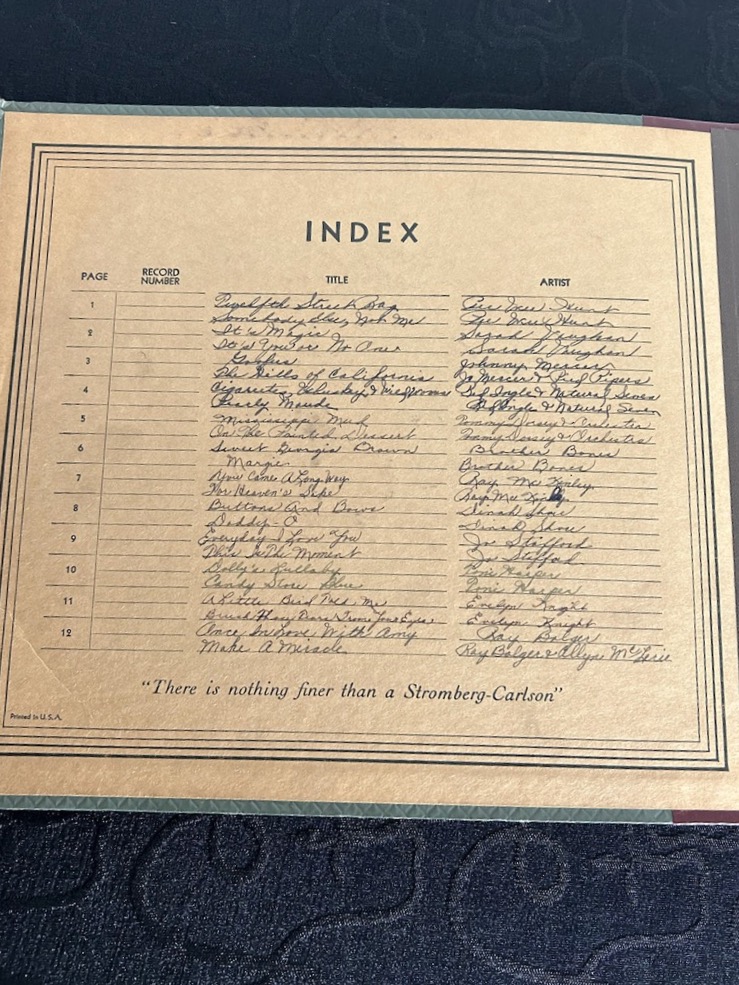 INDEX
PAGE RECORD NUMBER TITLE ARTIST
1 Twelfth Street Rag Pee Wee Hunt
Somebody Else, Not Me Pee Wee Hunt
2 It's Magic Sarah Vaughan
It's You or No One Sarah Vaughan
3 Goofus Johnny Mercer
The Hills of California Jo Mercer & Pied Pipers
4 Cigareetes, Whuskey & Wild Women Red Ingle & Natural Seven
Pearly Maude Red Ingle & Natural Seven
5 Mississippi Mud Tommy Dorsey & Orchestra
On The Painted Dessert Tommy Dorsey & Orchestra
6 Sweet Georgia Brown Brother Bones
Margie Brother Bones
7 You Came A Long Way Ray McKinley
For Heaven's Sake Ray McKinley
8 Buttons And Bows Dinah Shore
Daddy-O Dinah Shore
9 Everyday I Love You Jo Stafford
This Is The Moment Jo Stafford
10 Dolly's Lullaby Toni Harper
Candy Store Blue Toni Harper
11 A Little Bird Told Me Evelyn Knight
Brush Those Tears From Your Eyes Evelyn Knight
12 Once In Love With Amy Ray Bolger
Make A Miracle Ray Bolger & Allyn McLerie
"There is nothing finer than a Stromberg-Carlson"
Printed in U.S.A.